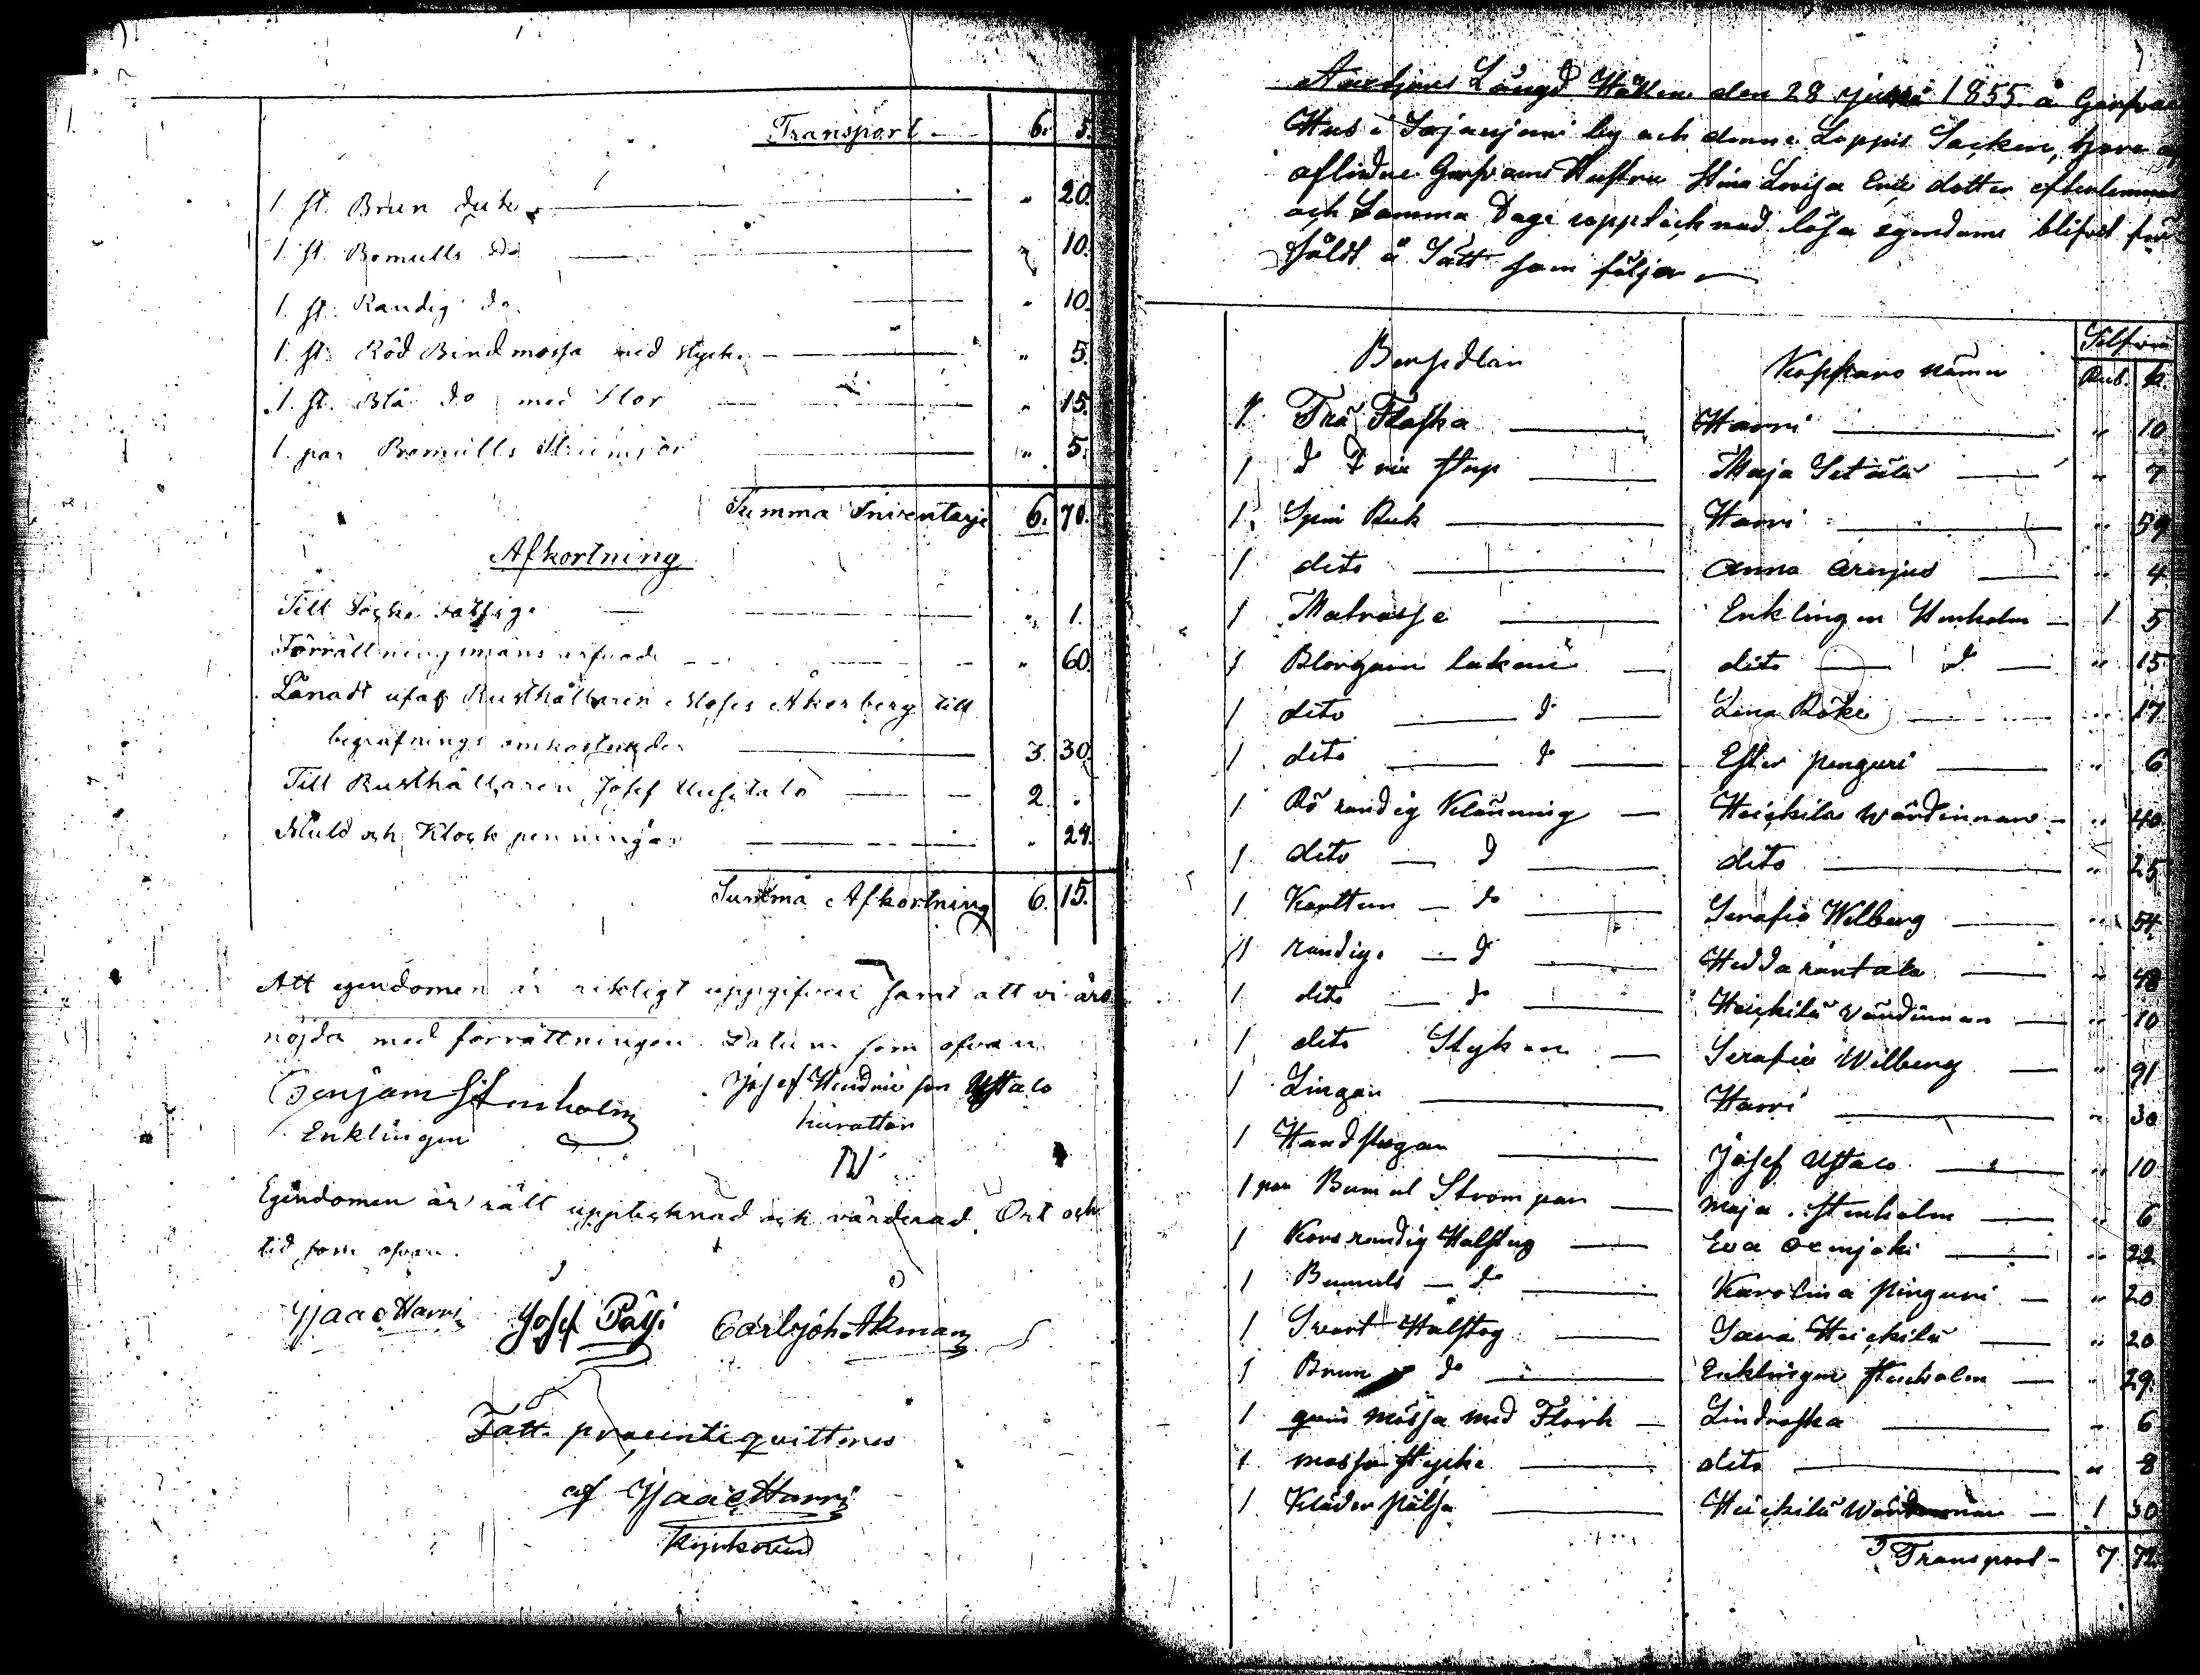 Transport 6. 5.
1 st. Brun duk " 20.
1 st. Bomulls do " 10.
1 st. Randig do " 10.
1 st. Röd Bindmössa med stycke " 5.
1 st. Blå do med Flor " 15.
1 par Bomulls Strumpor " 5.
Summa Inventarje 6. 70.
Afkortning
Till Socknefattige " 1.
Förrättningsmans arfvode " 60.
Lånadt utaf Rusthållaren Moses Åkerberg till
begrafnings omkostnader 3. 30.
Till Rusthållaren Josef Uusitalo 2. "
Mull och Klockpenningar " 24.
Summa Afkortning 6. 15.
Att egendomen är riktigt uppgifven samt att vi äro
nöjda med förrättningen Datum som ofvan
Benjam Stenholm Josef Hendricsson Ystalo
Enklingen kurattor
Egendomen är rätt upptecknad och värderad Ort och
tid som ofvan.
Isaac Harri Josef Päiji Carl Joh. Akman
Fatt. procent qvitteras
af Isaac Harri
Auctjons Längd Hållen den 28 juni 1855 å
Hus i Sojanjoni by och denne Loppis Socken,
aflidne Hustru Stina Lovisa Ericsdotter efterlemnade
och Samma Dag upptecknad lösa egendom blifvit för
såldt å Sätt som följer
Persedlar Köppares namn Silfver
Rub. k
1 Trä Flaska Harri " 10
1 d stop Maja Setälä " 7
1 Spin Ruk Harri " 59
1 dito Anna " 4
1 Matrasse Enklingen Stenholm 1 5
1 Blorgarn lakan dito do " 15
1 dito do Lena Böke " 17
1 dito do Ester pinguri " 6
1 Rö randig Klänning Heickilä Wärdinnan " 40
1 dito do dito " 25
1 Kartun do Serafia Wilberg " 54
1 randig do Hedda rantala " 48
1 dito do Heickilä värdinnan " 10
1 dito Styken Serafia Wilberg " 91
1 Lingan Harri " 30
1 Josef Ystalo " 10
1 par Bumul Strompor Maja Stenholm " 6
1 Kors randig Halstug Eva " 22
1 Bumuls do Karolina pinguri " 20
1 Svart Halstog Sara Heickilä " 20
1 Brun do Enklingen Stenholm " 29
1 mössa med Flork Lindroska " 6
1 mössa stycke dito " 8
1 Kläder pälsa Heickilä Wärdinnan 1 30
Transport 7 72